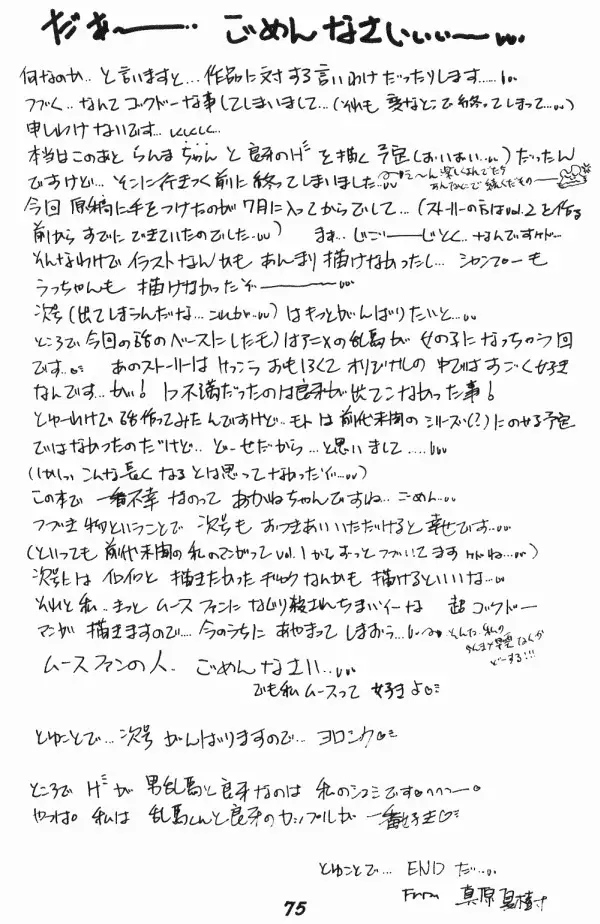 だぁ～～‥ ごめんなさいぃぃ～…
何なのか‥と言いますと…作品に対する言いわけだったりします……
つづく‥なんてゴクドーな事してしまいまして…(それも変なとこで終ってしまって…)
申しわけないです…
本当はこのあとらんまちゃんと良牙のを描く予定(おいおい…)だったん
ですけど…そこに行きつく前に終ってしまいました…
今回原稿に手をつけたのが7月に入ってからでして…(ストーリーの方はvol.2を作る
前からすでにできていたのでした…) まぁ…じごーじとく…なんですけど…
そんなわけでイラストなんかもあんまり描けなかったし… シャンプーも
うっちゃんも描けなかったぞー
次号(出てしまうんだな…これが…)はもっとがんばりたいと…
ところで今回の話のベースにしたモノはアニメの乱馬が女の子になっちゃう回
です… あのストーリーはけっこうおもしろくてオリジナルの中ではすごく好き
なんです…が！1つ不満だったのは良牙が出てこなかった事！
とゆーわけで話作ってみたんですけど‥モトは前代未聞のシリーズ(?)にのせる予定
ではなかったのだけど‥どーせだから…と思いまして……
(しかしこんな長くなるとは思ってなかったぞ…)
この本で一番不幸なのってあかねちゃんですね‥ごめん…
つづき物ということで次号もおつきあいいただけると幸せです…
(といっても前代未聞の私のまんがってvol.1からずっとつづいてますけどね…)
次号にはイロイロと描きたかったギャグなんかも描けるといいな…
それと私‥きっとムースファンになぐり殺されちまいそーな超ゴクドー
マンガ描きますので…今のうちにあやまってしまおう…
そんな私の
どーする!!!
ムースファンの人. ごめんなさい…
でも私ムースって好きよ
とゆことで…次号がんばりますので… ヨロシク
ところでが男乱馬と良牙なのは私のシュミです
やっぱ私は乱馬くんと良牙のカップルが一番好き
とゆことで… ENDだ…
From 真原夏樹
75